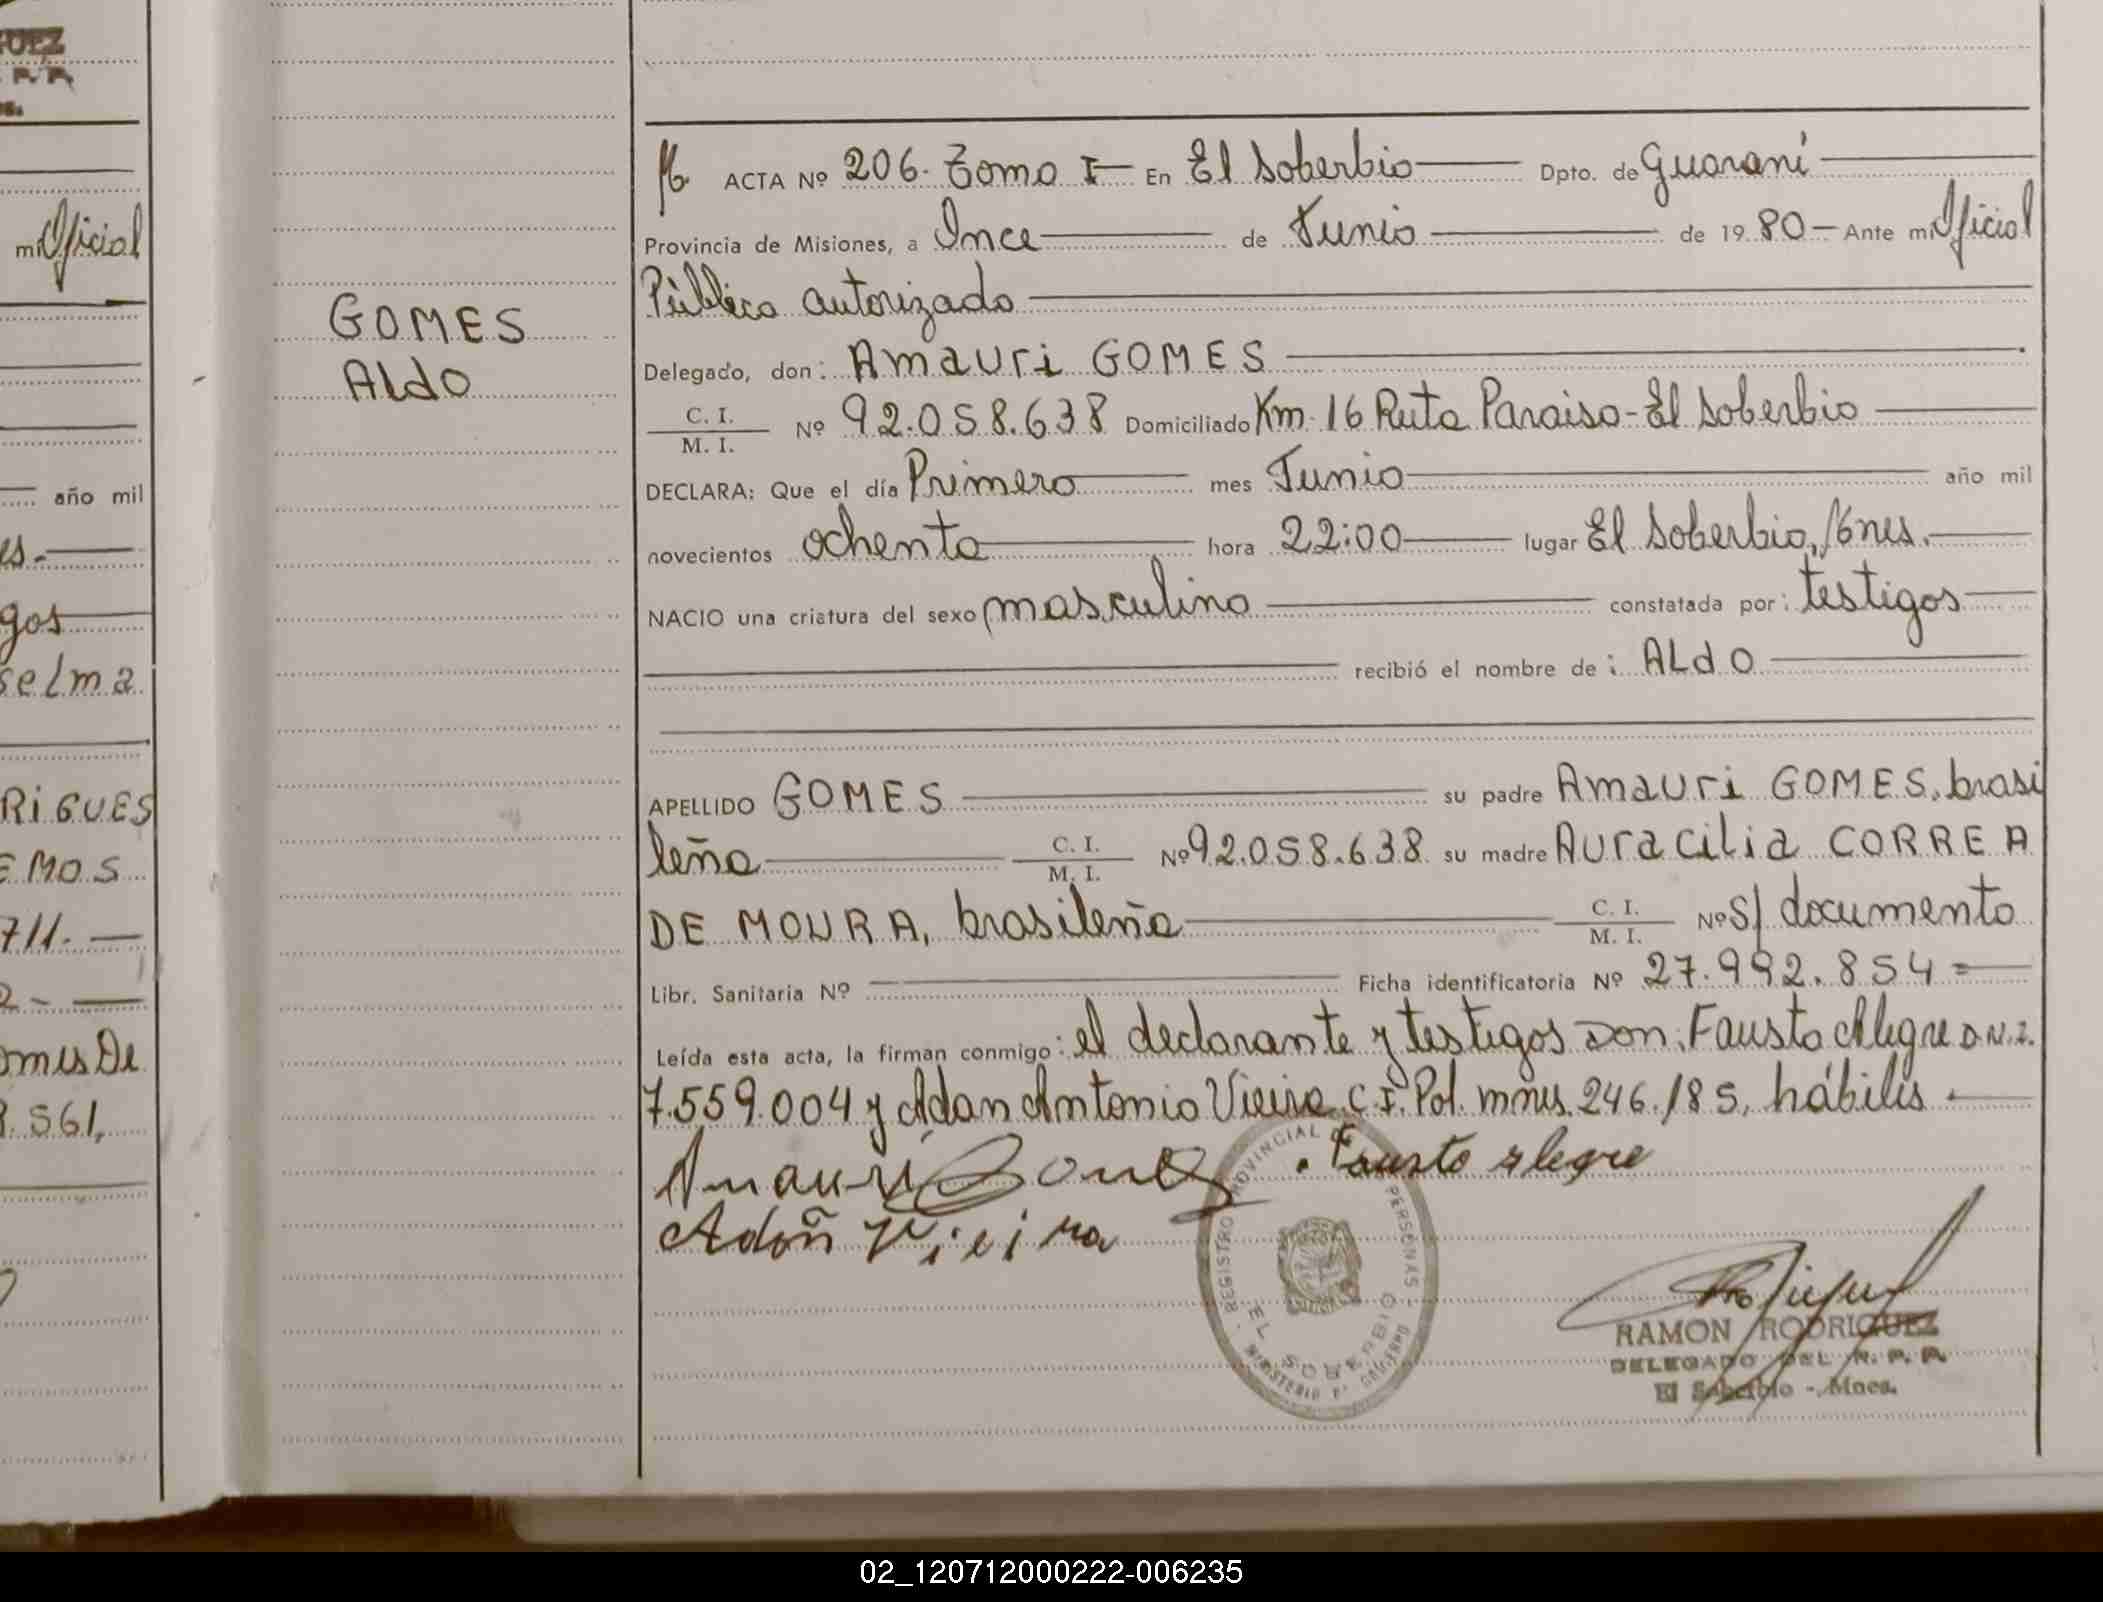 GUEZ
mi Oficial
año mil
es.
gos
selma
RIGUES
EMOS
711.
2.-
omes De
8.561,
GOMES
Aldo
ACTA Nº 206. Tomo I En El Soberbio Dpto. de Guaraní
Provincia de Misiones, a Once de Junio de 1980 Ante mi Oficial
Público autorizado
Delegado, don: Amauri GOMES
C. I. / M. I. Nº 92.058.638 Domiciliado Km 16 Ruta Paraiso-El Soberbio
DECLARA: Que el día Primero mes Junio año mil
novecientos ochenta hora 22:00 lugar El Soberbio, Mnes.
NACIO una criatura del sexo masculino constatada por: testigos
recibió el nombre de: ALdO
APELLIDO GOMES su padre Amauri GOMES, brasi
leña C. I. / M. I. Nº 92.058.638 su madre Auracilia CORREA
DE MOURA, brasileña C. I. / M. I. Nº S/documento
Libr. Sanitaria Nº Ficha identificatoria Nº 27.992.854=
Leída esta acta, la firman conmigo: el declarante y testigos Don: Fausto Alegre D.N.I.
7.559.004 y Adan Antonio Vieira C.I. Pol. mnes. 246.185, hábiles.
Amauri Gomes . Fausto alegre
Adan Vieira
REGISTRO PROVINCIAL DE PERSONAS
EL SOBERBIO
MINISTERIO DE GOBIERNO
RAMON RODRIGUEZ
DELEGADO DEL R. P. P.
El Soberbio - Mnes.
02_120712000222-006235